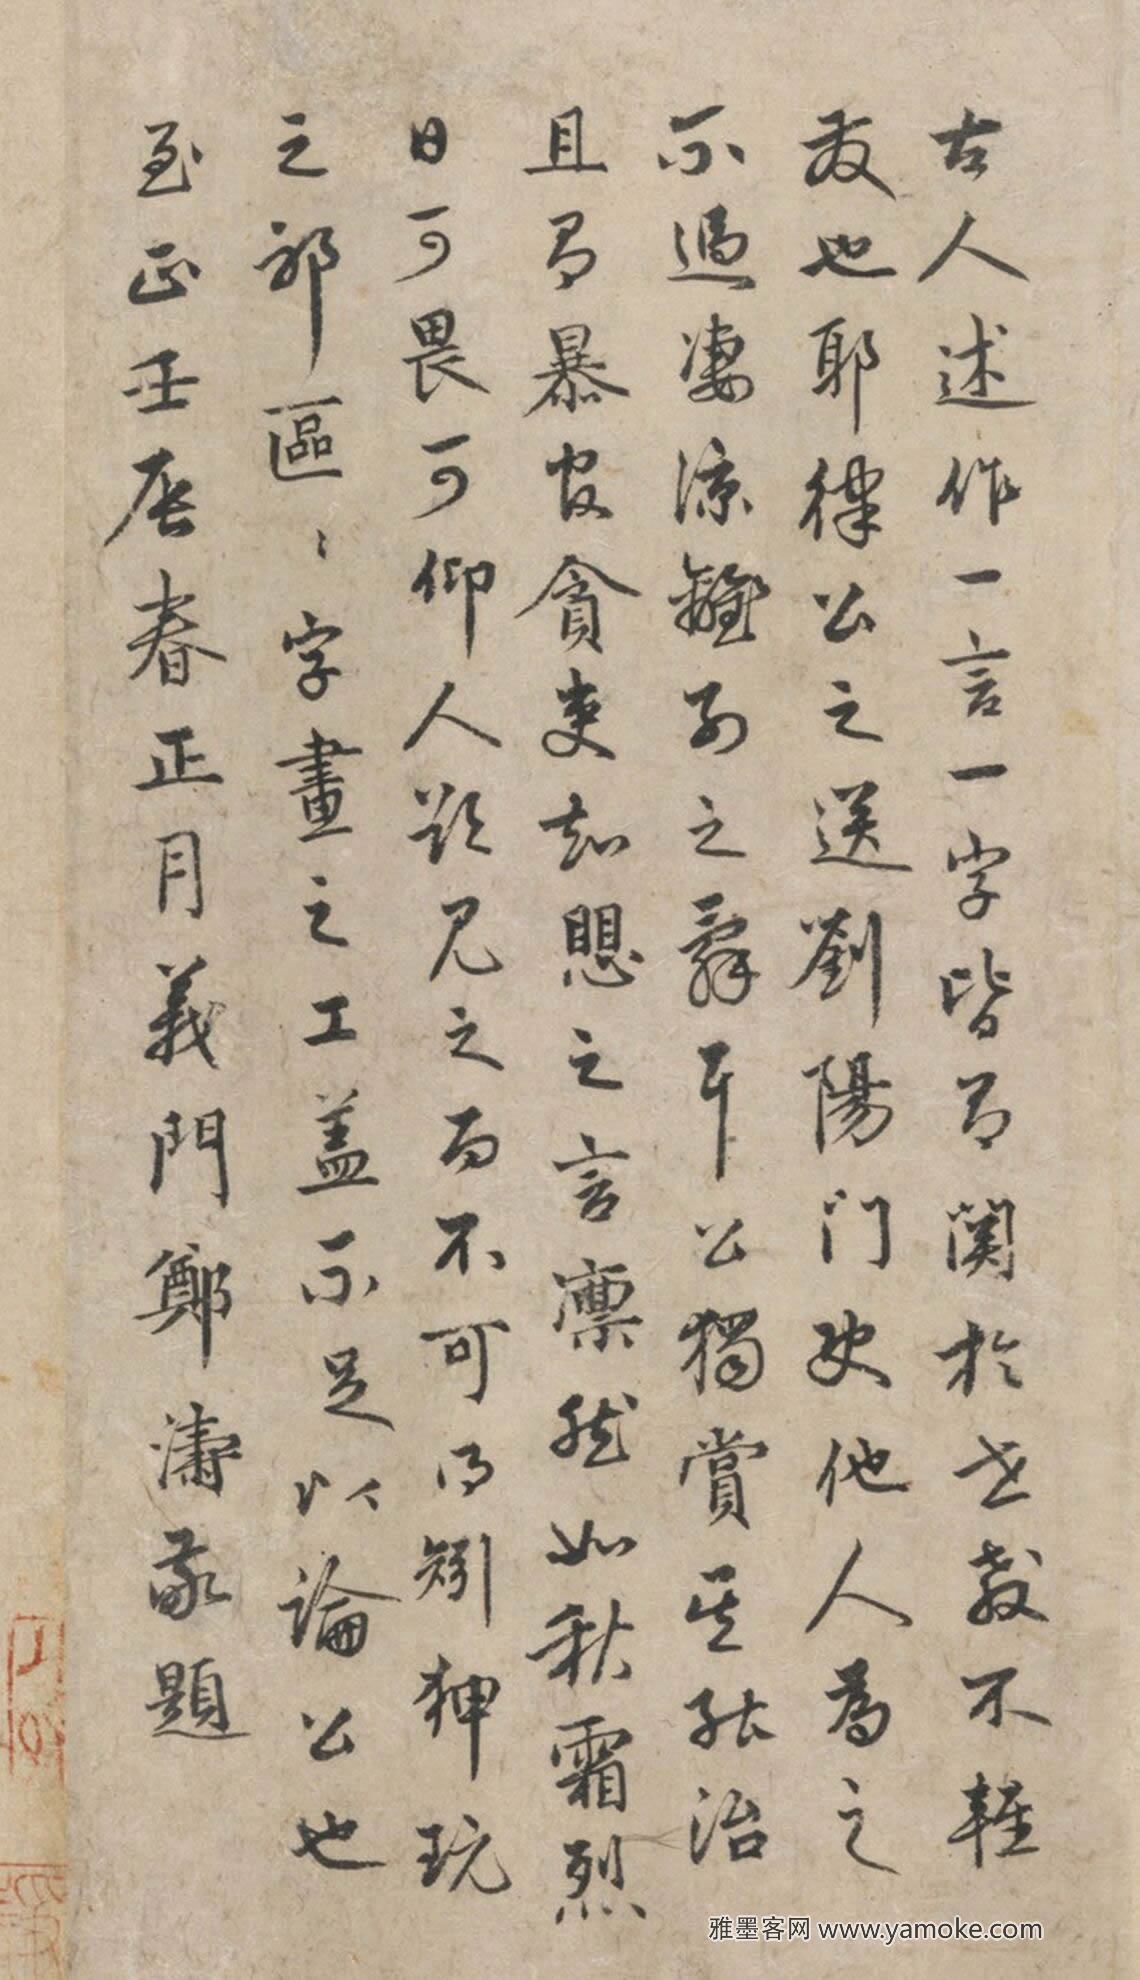 古人述作一言一字皆有関於世教不輕
友也耶律公之送劉陽门史他人為之
不過凄涼離别之辭耳公獨賞其能治
且有暴官貪吏知愳之言凛然如秋霜烈
日可畏可仰人欲見之而不可得矧狎玩
之邪區〻字畫之工盖不足以論公也
至正壬辰春正月義門鄭濤敬題
雅墨客网 www.yamoke.com